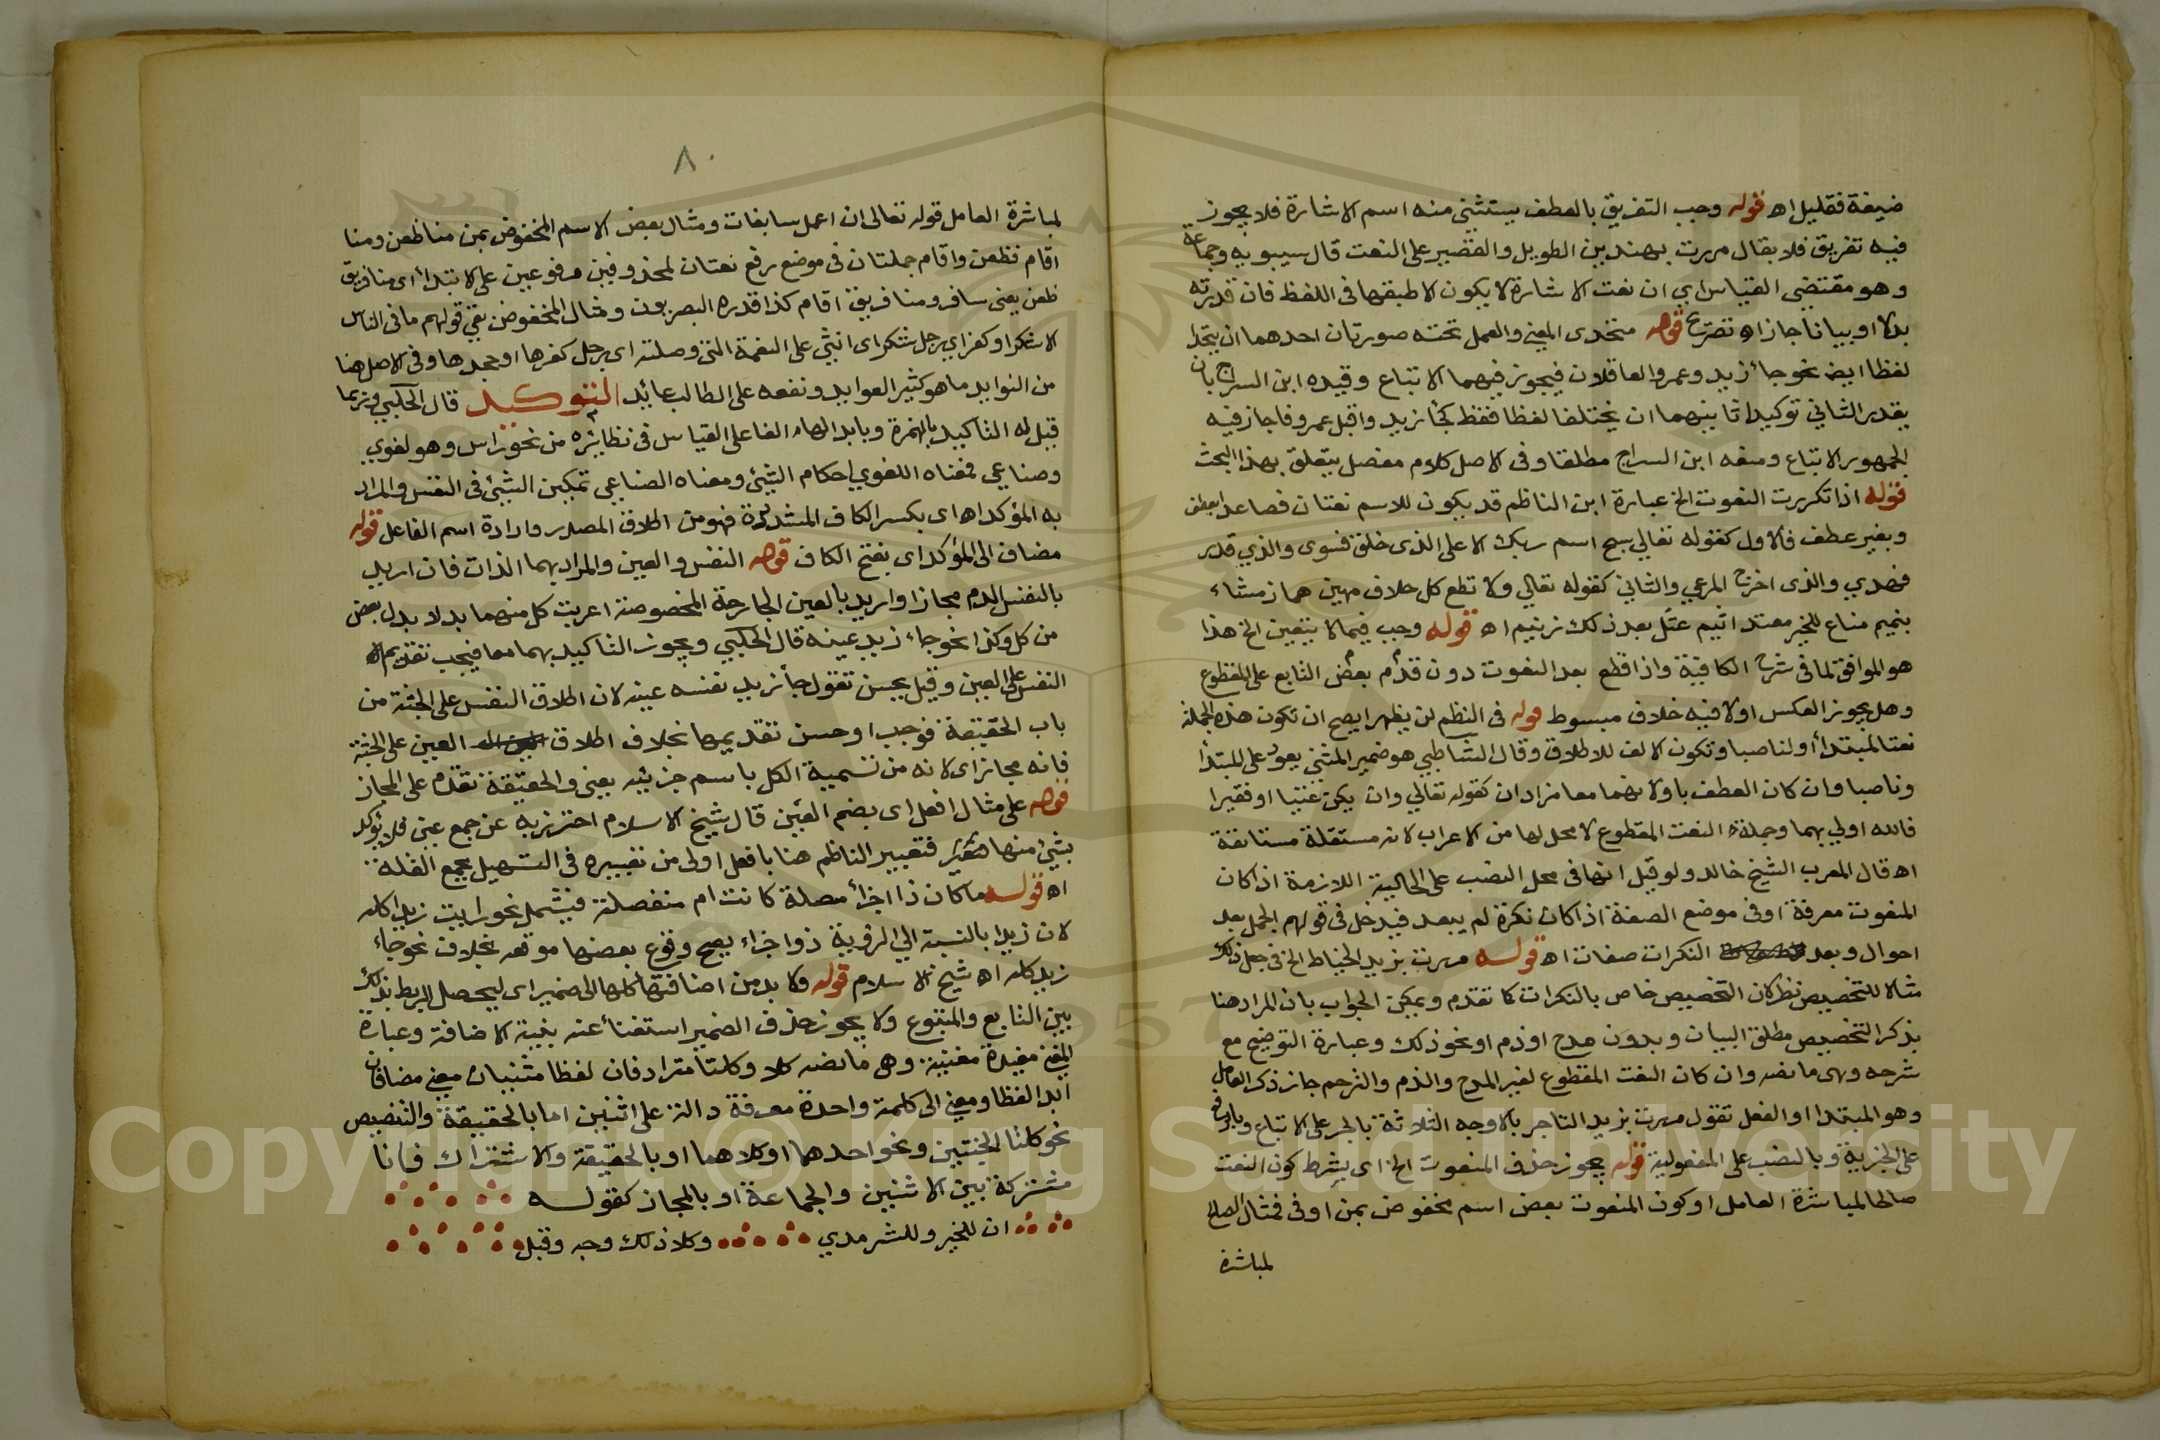 ضيفة فقليل اه قوله وجب التفريق بالعطف يستثنى منه اسم الاشارة فلا يجوز
فيه تفريق فلا يقال مررت بهذين الطويل والقصير على النعت قال سيبويه وجماعة
وهو مقتضى القياس اي ان نعت الاشارة لا يكون الا طبقها في اللفظ فان قدرته
بدلا او بيانا جاز اه تصريح قوله متحدى المعنى والعمل تحته صورتان احدهما ان يتحدا
لفظا ايض نحو جأ زيد وعمرو العاقلان فيجوز فيهما الاتباع وقيده ابن السراج بان
يقدر الثاني توكيدا ثانيهما ان يختلفا لفظا فقط كجأ زيد واقبل عمرو فاجاز فيه
الجمهور الاتباع ومنعه ابن السراج مطلقا وفى الاصل كلام مفصل يتعلق بهذا البحث
قوله اذا تكررت النعوت الخ عبارة ابن الناظم قد يكون للاسم نعتان فصاعدا بعطف
وبغير عطف فالاول كقوله تعالي سبح اسم ربك الاعلى الذى خلق فسوى والذي قدر
فهدي والذى اخرج المرعي والثاني كقوله تعالي ولا تطع كل حلاف مهين هماز مشاء
بنميم مناع للخير معتد اثيم عتل بعد ذلك زنيم اه قوله وجب فيما لا يتعين الخ هذا
هو الموافق لما فى شرح الكافية واذا قطع بعد النعوت دون قدم بعض التابع على المقطوع
وهل يجوز العكس اولا فيه خلاف مبسوط قوله فى النظم لن يظهرا يصح ان تكون هذه الجملة
نعتا لمبتدأ او لناصبا وتكون الالف للاطلاق وقال الشاطبي هو ضمير المثنى يعود على المبتدأ
وناصبا وان كان العطف باو لانهما معا مرادان كقوله تعالي وان يكن غنيا او فقيرا
فالله اولي بهما وجملة النعت المقطوع لا محل لها من الاعراب لانه مستقلة مستانفة
اه قال المعرب الشيخ خالد ولو قيل انها فى محل النصب على الحالية اللازمة اذا كان
المنعوت معرفة او فى موضع الصفة اذا كان نكرة لم يبعد فيدخل فى قولهم الجمل بعد
احوال وبعد النكرات صفات اه قوله مررت بزيد الخياط الخ فى جعل ذلك
مثالا للتخصيص نظر كان التخصيص خاص بالنكرات كما تقدم ويمكن الجواب بان المراد هنا
بذكر التخصيص مطلق البيان وبدون مدح او ذم او نحو ذلك وعبارة التوضيح مع
شرحه وهى ما نصه وان كان النعت المقطوع لغير المدح والذم والترحم جاز ذكر العامل
وهو المبتدا او الفعل تقول مررت بزيد التاجر بالاوجه الثلاثة بالجر على الاتباع وبالرفع
على الخبرية وبالنصب على المفعولية قوله يجوز حذف المنعوت الخ اى بشرط كون النعت
صالحا لمباشرة العامل او كون المنعوت بعض اسم مخفوض بمن او فى فمثال الصالح
لمباشرة
٨٠
لمباشرة العامل قوله تعالى ان اعمل سابغات ومثال بعض الاسم المخفوض بمن منا ظعن ومنا
اقام فظعن واقام جملتان فى موضع رفع نعتان لمحذوفين مرفوعين على الابتدأ اى منا فريق
ظعن يعنى سافر ومنا فريق اقام كذا قدره البصريون ومثال المخفوض بفي قولهم ما فى الناس
الا شكر او كفر اي رجل شكر اى اثنى على النعمة التى وصلته اى رجل كفرها او جحدها وفى الاصل هنا
من النوايد ما هو كثير العوايد ونفعه على الطالب عائد التوكيد قال الحلبي وربما
قيل له التاكيد بالهمزة وبابدالها الفا على القياس فى نظائره من نحو راس وهو لغوي
وصناعي فمعناه اللغوي احكام الشئ ومعناه الصناعي تمكين الشئ فى النفس والمراد
به المؤكد اه اى بكسر الكاف المشددة فهو من اطلاق المصدر وارادة اسم الفاعل قوله
مضاف الى المؤكد اى بفتح الكاف قوله النفس والعين والمراد بهما الذات فان اريد
بالنفس الدم مجازا واريد بالعين الجارحة المخصوصة اعربت كل منهما بدلا بدل بعض
من كل وكذا نحو جاء زيد عينه قال الحلبي ويجوز التاكيد بهما معا فيجب تقديم
النفس على العين وقيل يحسن تقول جأ زيد نفسه عينه لان اطلاق النفس على الجثة من
باب الحقيقة فوجب او حسن تقديمها بخلاف اطلاق العين على الجثة
فانه مجاز اى لانه من تسمية الكل باسم جزئيه يعنى والحقيقة تقدم على المجاز
قوله على مثال افعل اى بضم العين قال شيخ الاسلام احترز به عن جمع عين فلا يؤكد
بشئ منها فتعبير الناظم هنا بافعل اولى من تعبيره فى التسهيل بجمع القلة
اه قوله ما كان ذا اجزأ متصلة كانت ام منفصلة فيشمل نحو رايت زيدا كله
لان زيدا بالنسبة الي الرؤية ذو اجزاء يصح وقوع بعضها موقعه بخلاف نحو جاء
زيد كله اه شيخ الاسلام قوله ولا بد من اضافتها كلها الى ضمير اى ليحصل الربط بذلك
بين التابع والمتبوع ولا يجوز حذف الضمير استغنأ عنه بنية الاضافة وعبارة
المغنى مفيدة مغنية وهى ما نصه كلا وكلتا مترادفان لفظا مثنيان معنى مضافان
ابدا لفظا ومعنى الى كلمة واحدة معرفة دالة على اثنين اما بالحقيقة والتنصيص
نحو كلتا الجنتين ونحو احدهما او كلاهما او بالحقيقة والاشتراك فان نا
مشتركة بين الاثنين والجماعة او بالمجاز كقوله
ان للخير وللشر مدي وكلا ذلك وجه وقبل